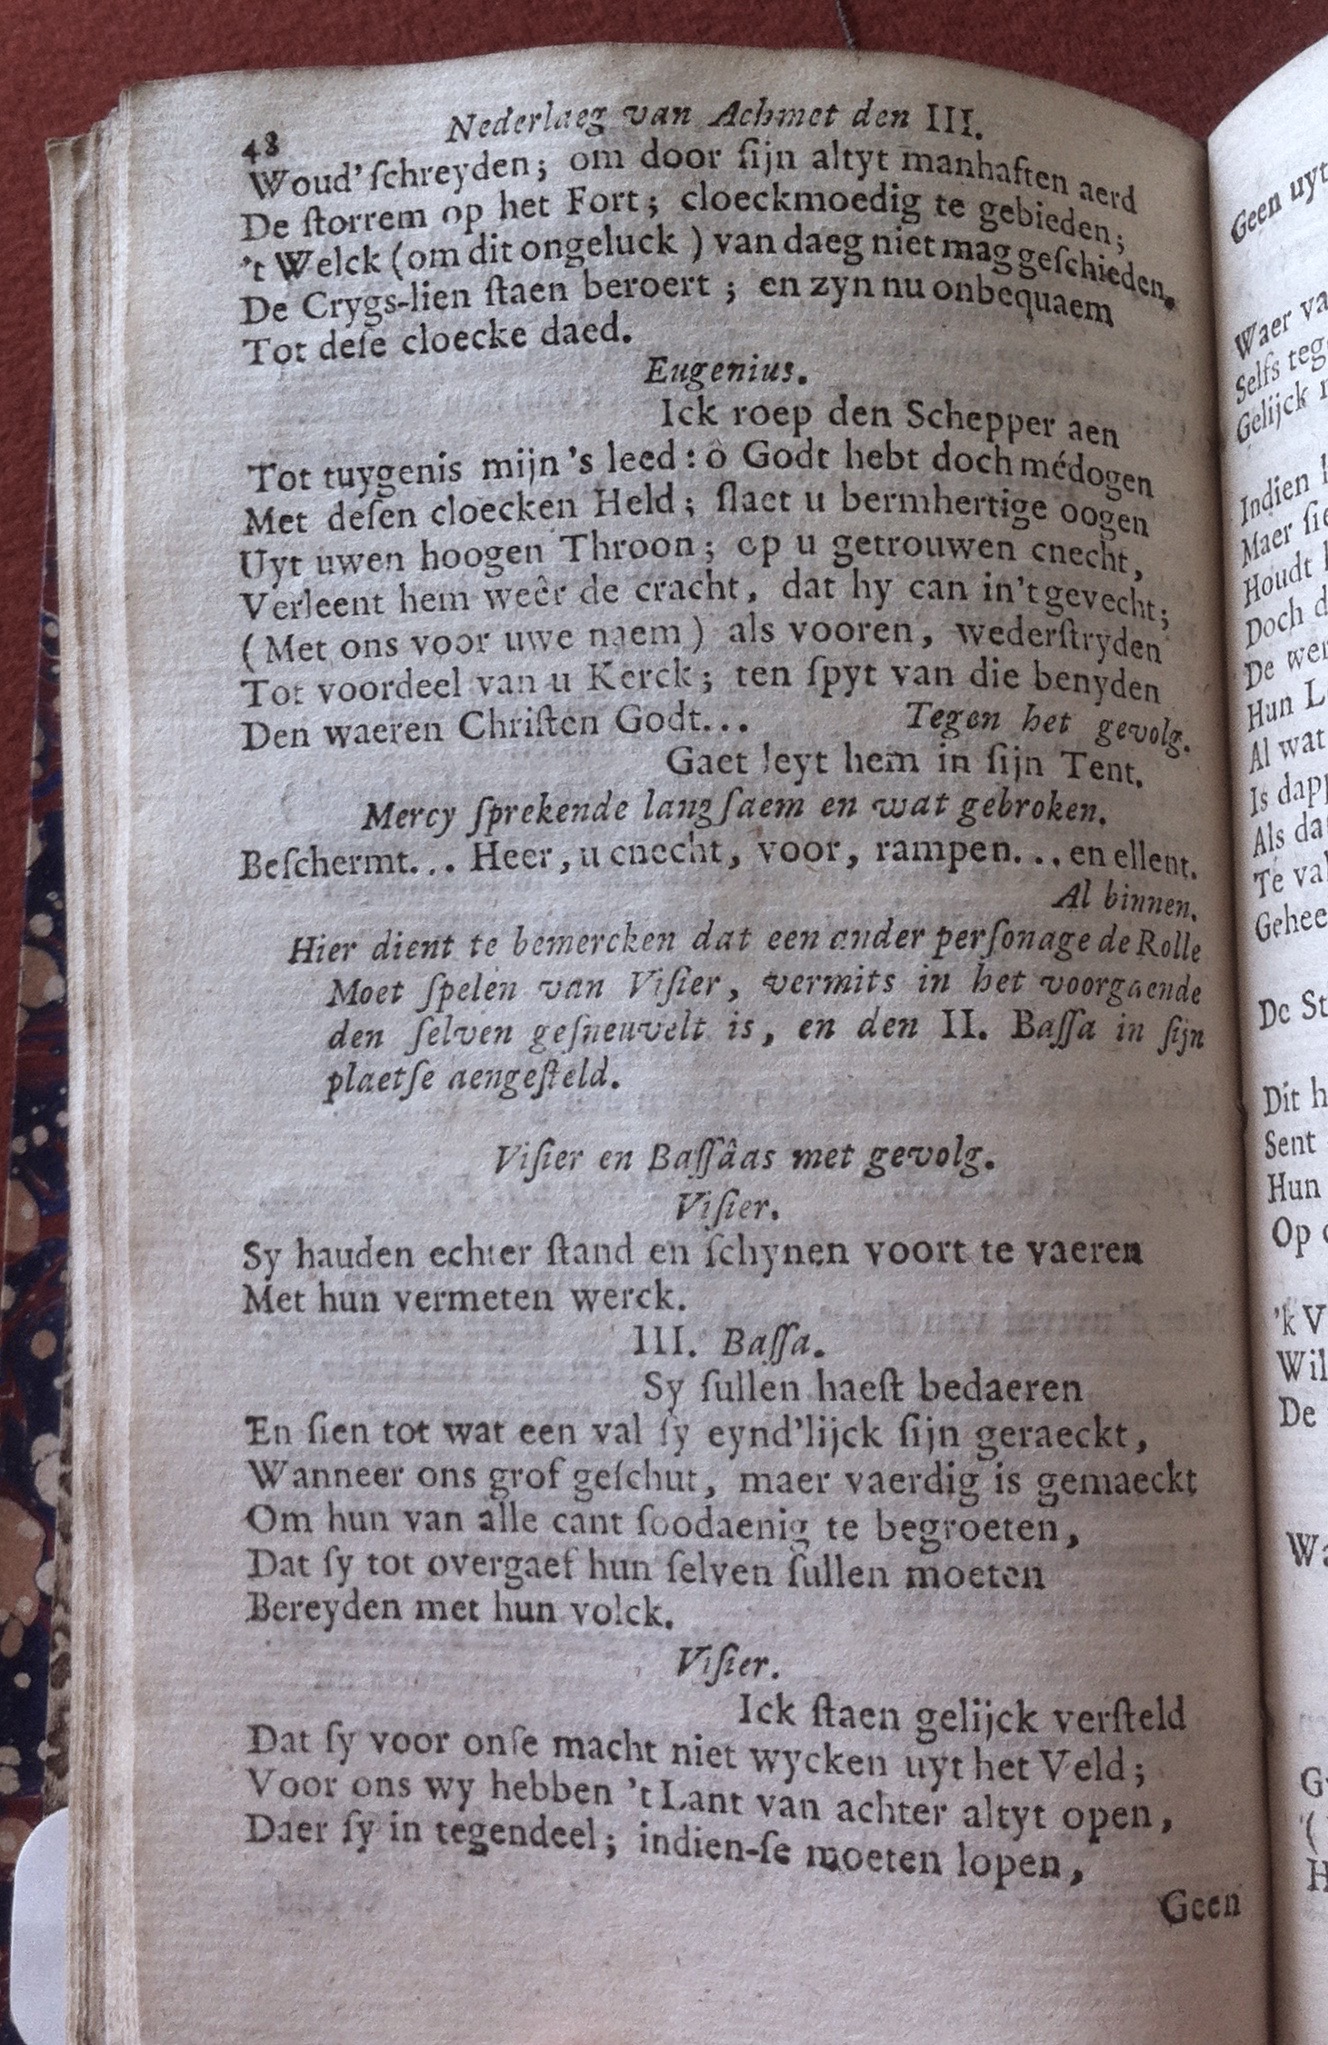 48
Nederlaeg van Achmet den III.
Woud' ſchreyden; om door ſijn altyt manhaften aerd
De ſtorrem op het Fort; cloeckmoedig te gebieden;
't Welck (om dit ongeluck ) van daeg niet mag geſchieden.
De Crygs-lien ſtaen beroert ; en zyn nu onbequaem
Tot deſe cloecke daed.
Eugenius.
Ick roep den Schepper aen
Tot tuygenis mijn 's leed: ô Godt hebt doch médogen
Met deſen cloecken Held; ſlaet u bermhertige oogen
Uyt uwen hoogen Throon; op u getrouwen cnecht,
Verleent hem weêr de cracht, dat hy can in't gevecht;
(Met ons voor uwe naem) als vooren, wederſtryden
Tot voordeel van u Kerck; ten ſpyt van die benyden
Den waeren Chriſten Godt...
Tegen het gevolg.
Gaet leyt hem in ſijn Tent.
Mercy ſprekende langſaem en wat gebroken.
Beſchermt... Heer, u cnecht, voor, rampen... en ellent.
Al binnen.
Hier dient te bemercken dat een ander perſonage de Rolle
Moet ſpelen van Viſier, vermits in het voorgaende
den ſelven geſneuvelt is, en den II. Baſſa in ſijn
plaetſe aengeſteld.
Viſier en Baſſâas met gevolg.
Viſier.
Sy hauden echter ſtand en ſchynen voort te vaeren
Met hun vermeten werck.
III. Baſſa.
Sy ſullen haeſt bedaeren
En ſien tot wat een val ſy eynd'lijck ſijn geraeckt,
Wanneer ons grof geſchut, maer vaerdig is gemaeckt
Om hun van alle cant ſoodaenig te begroeten,
Dat ſy tot overgaef hun ſelven ſullen moeten
Bereyden met hun volck.
Viſier.
Ick ſtaen gelijck verſteld
Dat ſy voor onſe macht niet wycken uyt het Veld;
Voor ons wy hebben 't Lant van achter altyt open,
Daer ſy in tegendeel; indien-ſe moeten lopen,
Geen
Geen uyt
Waer va
Selfs teg
Gelijck
Indien
Maer ſie
Houdt
Doch d
De wer
Hun L
Al wat
Is dapp
Als da
Té val
Gehee
De St
Dit h
Sent
Hun
Op
'k V
Wil
De